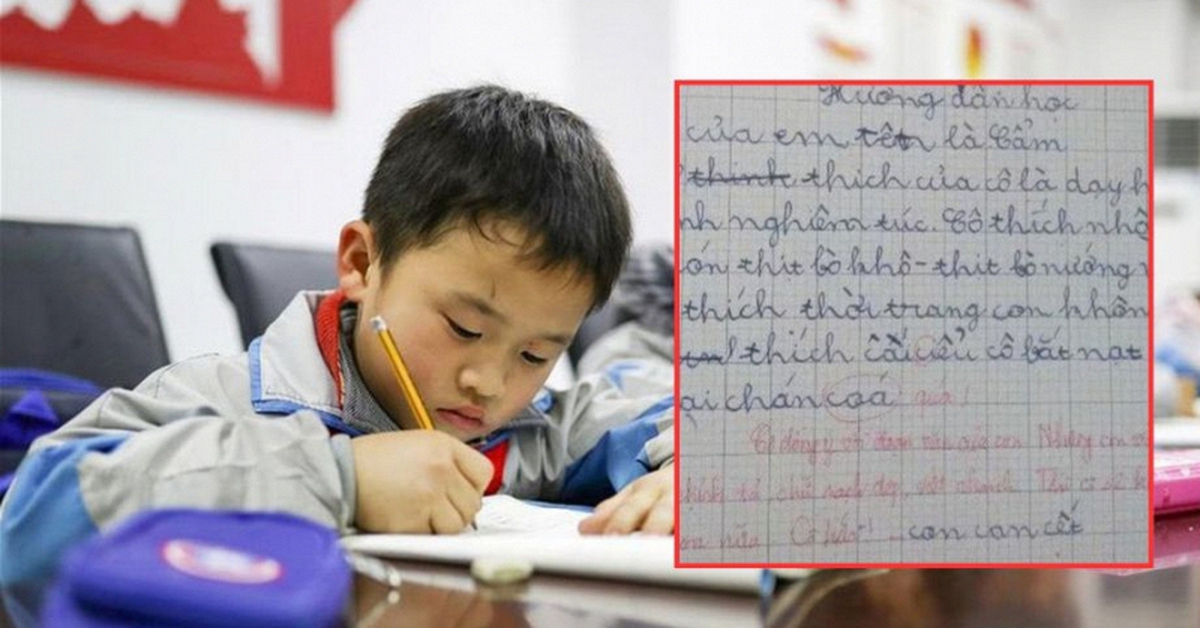 Hương dẫn học
của em tên là Cẩm
thích của cô là dạy h
nh nghiêm túc. Cô thích nhộ
ón thịt bò khô-thịt bò nướng
thích thời trang con khôn
thích cô bắt nạt
ại chán coá quá
Cô đồng ý với đoạn văn của con. Nhưng con
chữ sạch đẹp,
nữa. Cô hứa! con can cết